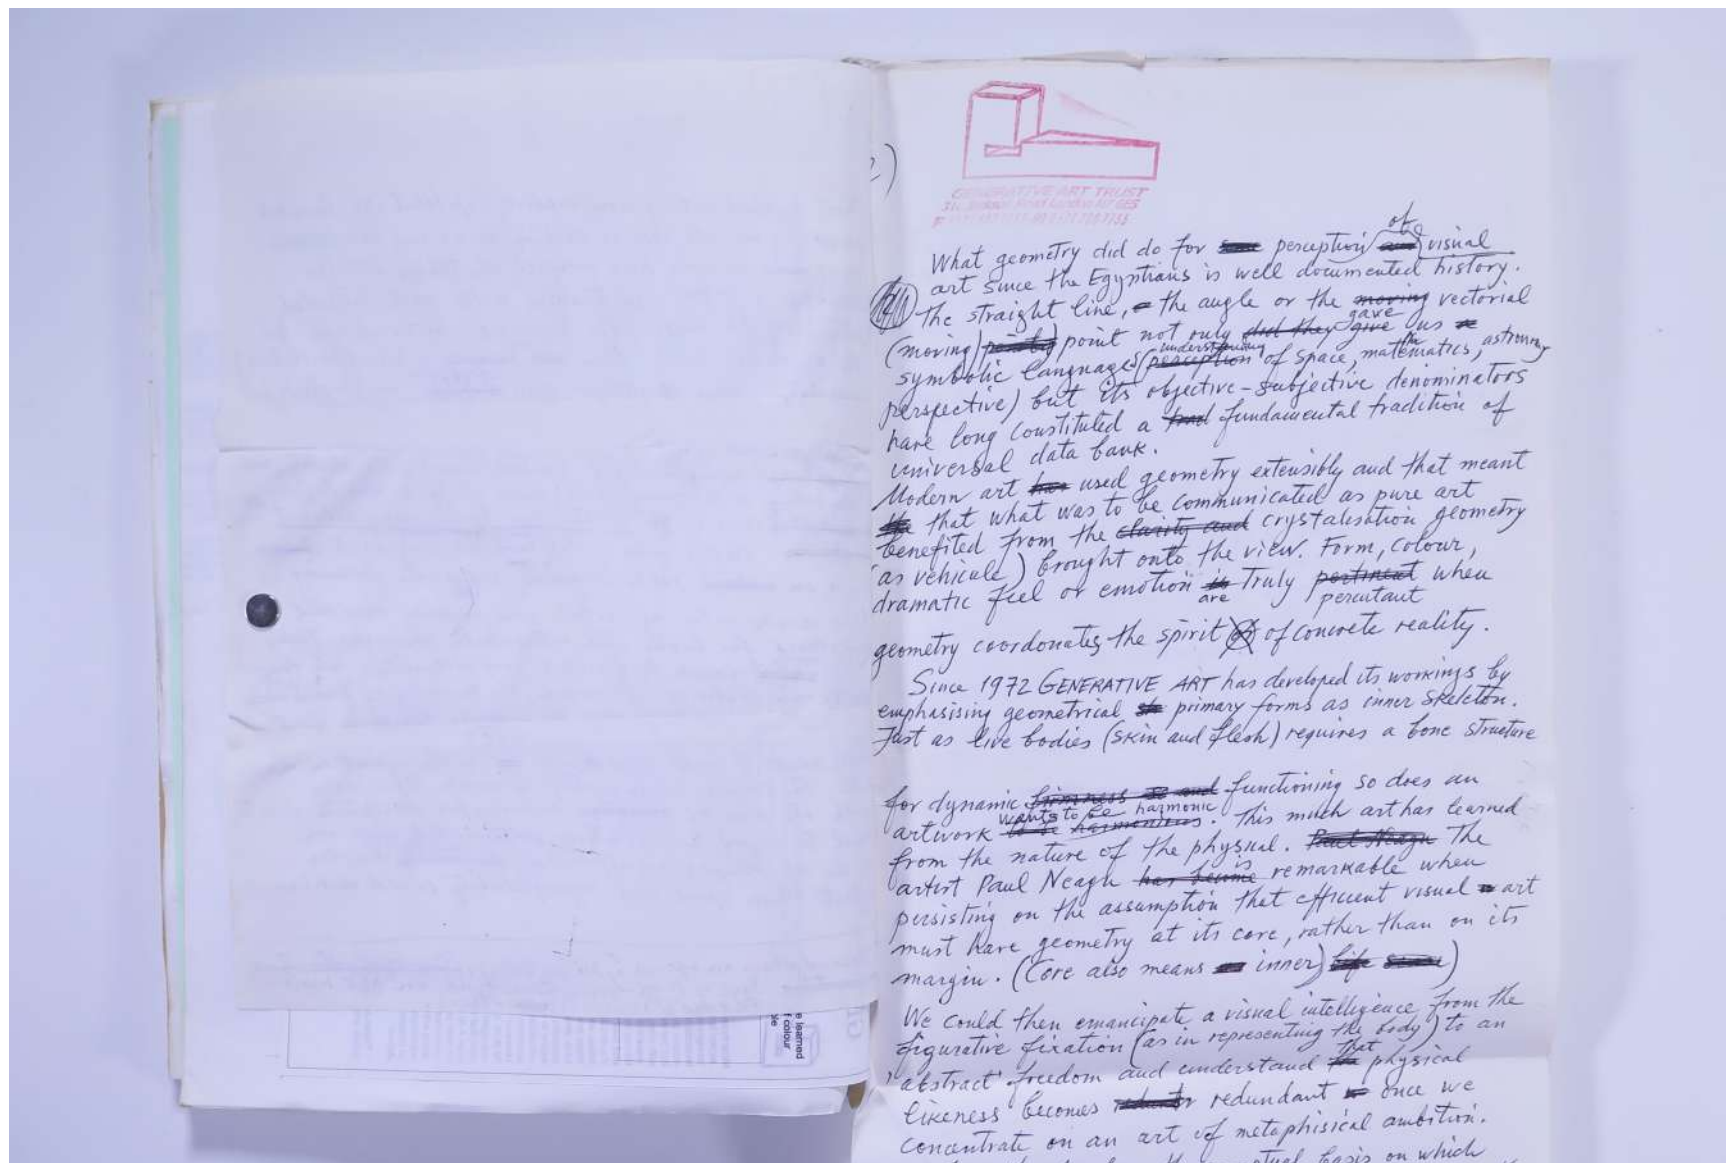 2)
GENERATIVE ART TRUST
What geometry did do for some perception of visual
art since the Egyptians is well documented history.
The straight line, the angle or the moving vectorial
(moving) point not only did they give gave us
symbolic languages (perception understanding of space, mathematics, astronomy
perspective) but its objective-subjective denominators
have long constituted a trad fundamental tradition of
universal data bank.
Modern art has used geometry extensibly and that meant
the that what was to be communicated as pure art
benefited from the clarity and crystalisation geometry
(as vehicule) brought onto the view. Form, colour,
dramatic feel or emotion is are truly pertinent percutant when
geometry coordonates the spirit of concrete reality.
Since 1972 GENERATIVE ART has developed its workings by
emphasising geometrical primary forms as inner skeleton.
Just as live bodies (skin and flesh) requires a bone structure
for dynamic firmness and functioning so does an
artwork to be harmonious wants to be harmonic. This much art has learned
from the nature of the physical. Paul Neagu The
artist Paul Neagu has become is remarkable when
persisting on the assumption that efficient visual art
must have geometry at its core, rather than on its
margin. (Core also means inner)
We could then emancipate a visual intelligence from the
figurative fixation (as in representing the body) to an
'abstract' freedom and understand the that physical
likeness becomes redundant once we
concentrate on an art of metaphisical ambition.
basis on which
e learned
f colour